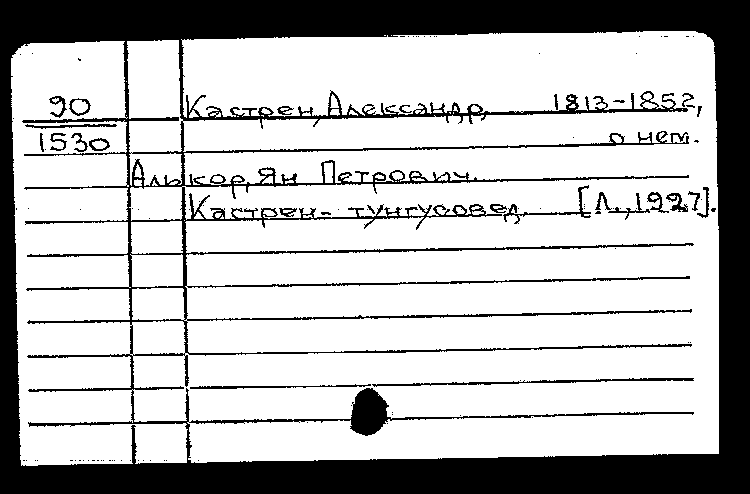 90 Кастрен, Александр, 1813-1852,
1530 о нем.
Алькор, Ян Петрович.
Кастрен - тунгусовед. [Л., 1927].